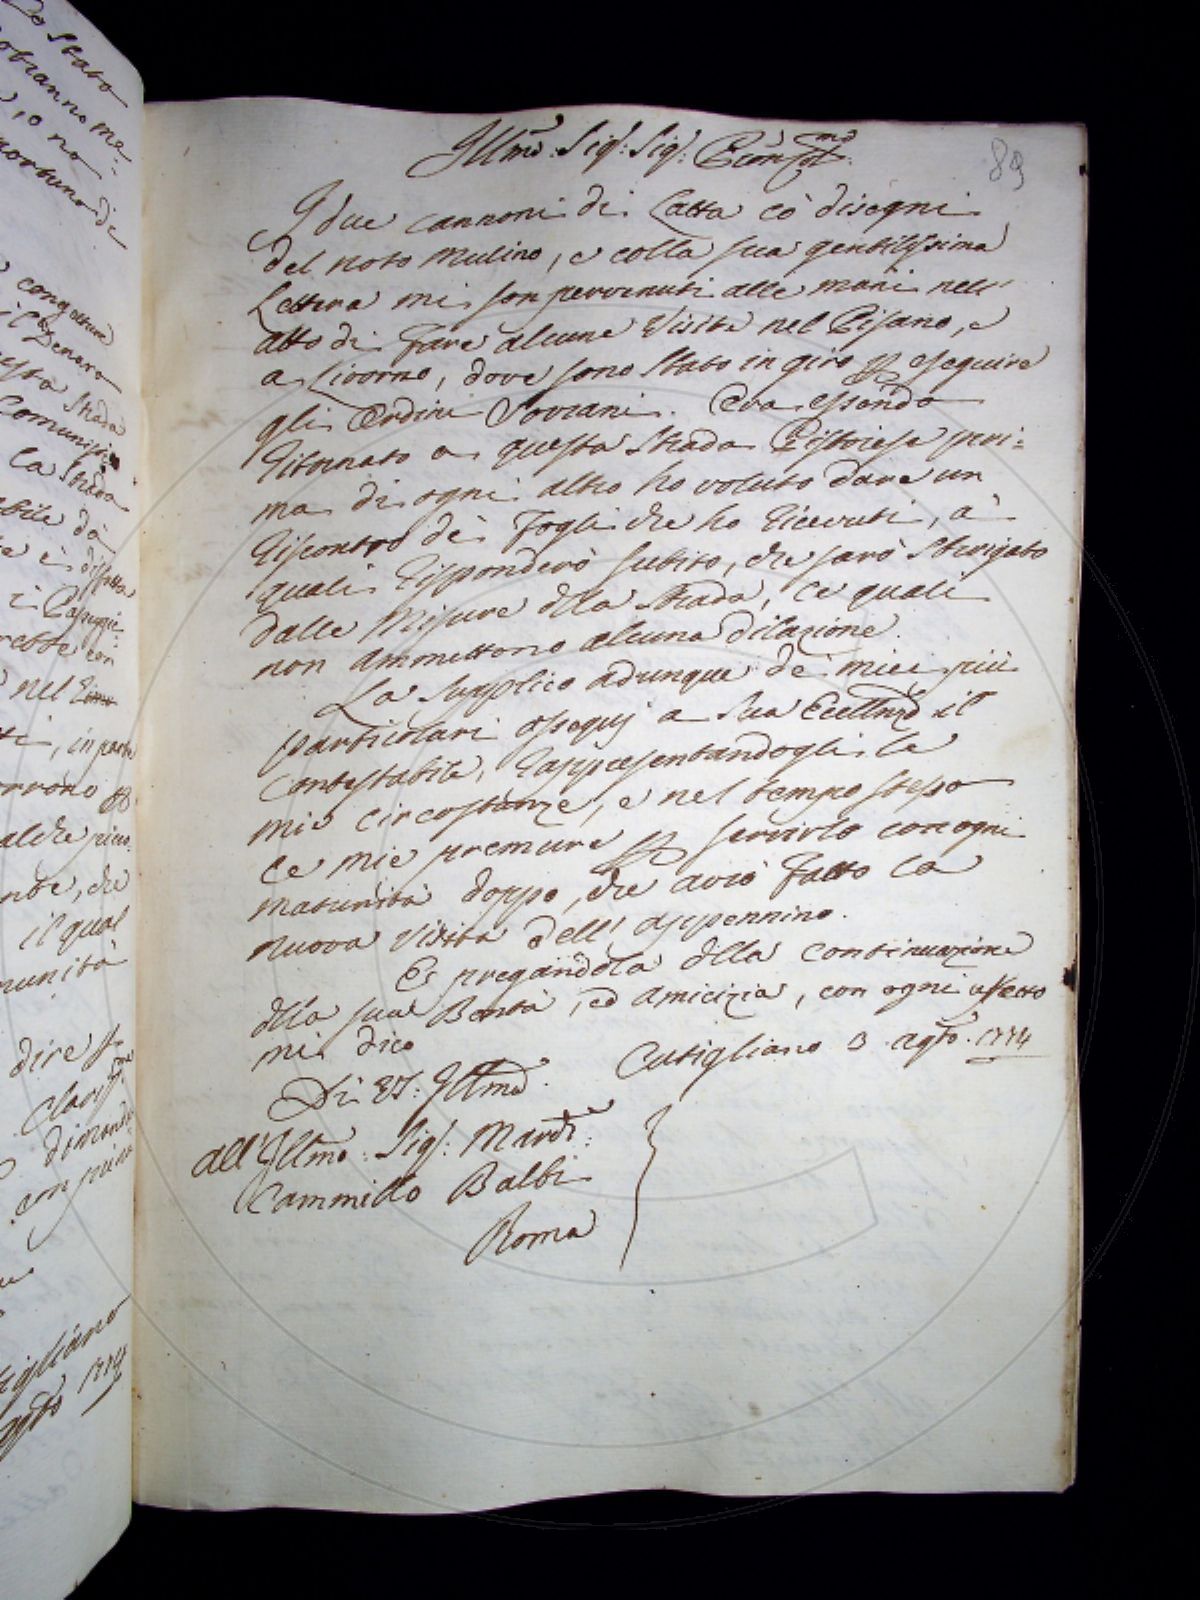 o Stato
obranno me=
, o no
portuno di
congetture
il Denaro
esta Strada
Comunità
la Strada
abile da
te è disposta
i Passeggie=
rebbe con
nel
ti, in parte
orrono
alche picco.
nte, che
il qual
munità
dire
Clariss.me
dimanda
con più
igliano
agto 1774
89
Illmo: Sigr: Sigr: Pron Colmo
I due cannoni di Latta có disegni
del noto Mulino, e colla sua gentilissima
Lettera mi son pervenuti alle mani nell'
atto di fare alcune Visite nel Pisano, e
a Livorno, dove sono stato in giro p eseguire
gli Ordini Sovrani. Ora essendo
ritornato a questa Strada Pistoiese pri=
ma di ogni altro ho voluto dare un
riscontro dei Fogli che ho ricevuti, a'
quali risponderò subito, che sarò strigato
dalle Misure dlla Strada, le quali
non ammettono alcuna dilazione.
La supplico adunque de' miei più
particolari ossequj a Sua Eccellnza il
Contestabile, rappresentandogli le
mie circostanze, e nel tempo stesso
le mie premure p servirlo con ogni
maturità doppo, che avrò fatto la
nuova Visita dell' Appennino.
E pregandola dlla continuazione
dlla sua Bontà, ed amicizia, con ogni affetto
mi dico
Cutigliano 3 agto. 1774
Di VS: Illma
all'Illmo: Sigr: March:
Cammillo Balbi
Roma